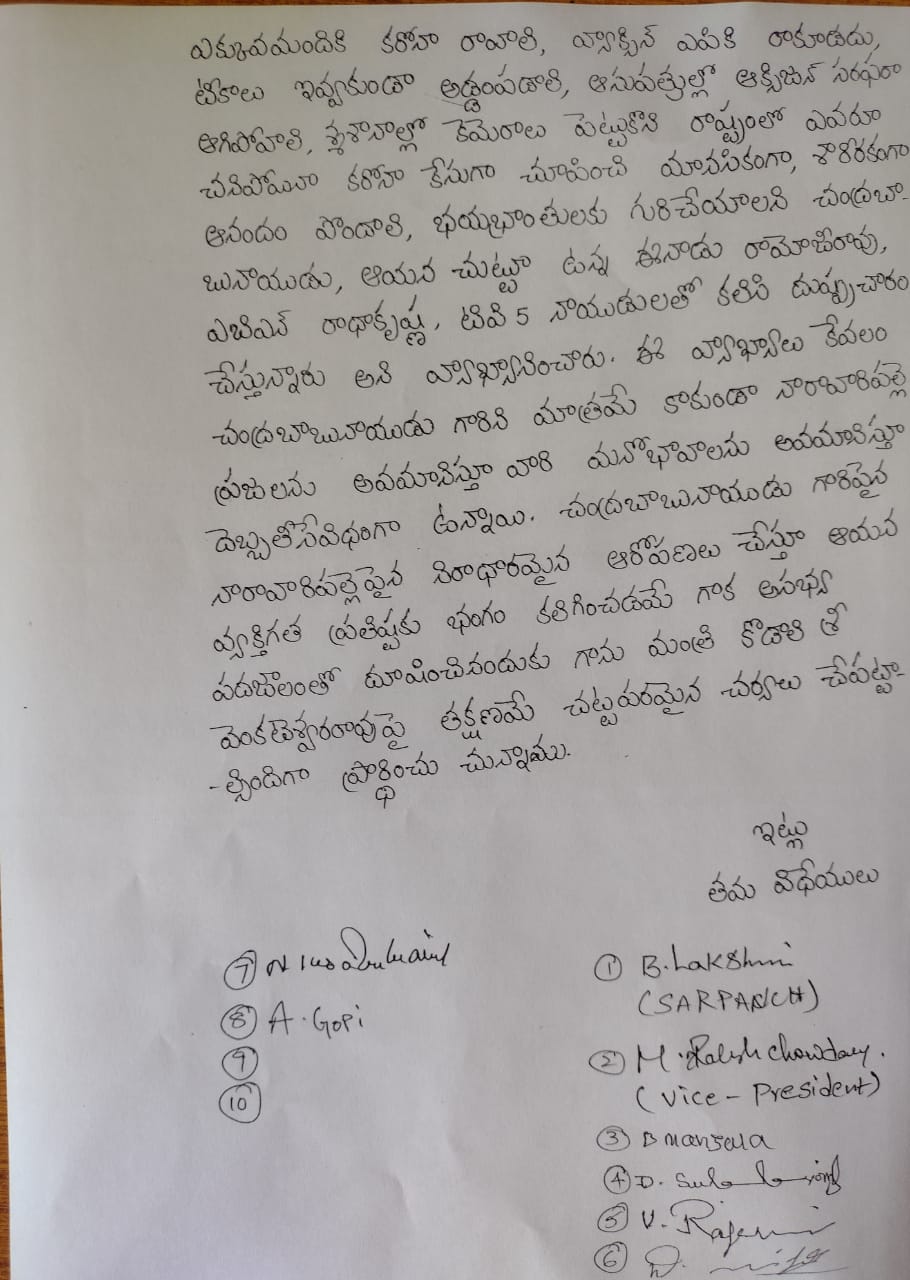 ఎక్కువమందికి కరోనా రావాలి, వ్యాక్సిన్ ఎపికి రాకూడదు,
టీకాలు ఇవ్వకుండా అడ్డంపడాలి, ఆసుపత్రుల్లో ఆక్సిజన్ సరఫరా
ఆగిపోవాలి, శ్మశానాల్లో కెమెరాలు పెట్టుకొని రాష్ట్రంలో ఎవరూ
చనిపోయినా కరోనా కేసుగా చూపించి మానసికంగా, శారీరకంగా
ఆనందం పొందాలి, భయభ్రాంతులకు గురిచేయాలని చంద్రబా-
బునాయుడు, ఆయన చుట్టూ ఉన్న ఈనాడు రామోజీరావు,
ఎబిఎన్ రాధాకృష్ణ, టివి 5 నాయుడులతో కలిసి దుష్ప్రచారం
చేస్తున్నారు అని వ్యాఖ్యానించారు. ఈ వ్యాఖ్యలు కేవలం
చంద్రబాబునాయుడు గారిని మాత్రమే కాకుండా నారావారిపల్లె
ప్రజలను అవమానిస్తూ వారి మనోభావాలను అవమానిస్తూ
దెబ్బతీసేవిధంగా ఉన్నాయి. చంద్రబాబునాయుడు గారిపైన
నారావారిపల్లెపైన నిరాధారమైన ఆరోపణలు చేస్తూ ఆయన
వ్యక్తిగత ప్రతిష్టకు భంగం కలిగించడమే గాక అసభ్య
పదజాలంతో దూషించినందుకు గాను మంత్రి కొడాలి శ్రీ
వెంకటేశ్వరరావుపై తక్షణమే చట్టపరమైన చర్యలు చేపట్టా-
-ల్సిందిగా ప్రార్థించు చున్నాము.
ఇట్లు
తమ విధేయులు
① B. Lakshmi
(SARPANCH)
② M. chowdary.
(Vice - President)
③ B
④ D.
⑤ V.
⑥ D.
⑦ N
⑧ A. Gopi
⑨
⑩